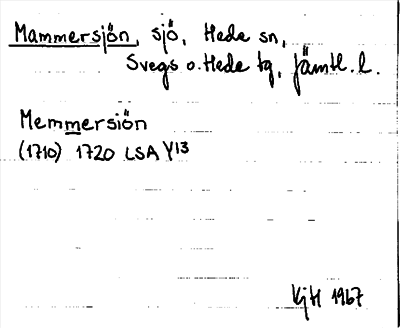 Mammersjön, sjö, Hede sn,
Svegs o. Hede tg, Jämtl. l.
Memmersiön
(1710) 1720 LSA Y13
KjH 1967